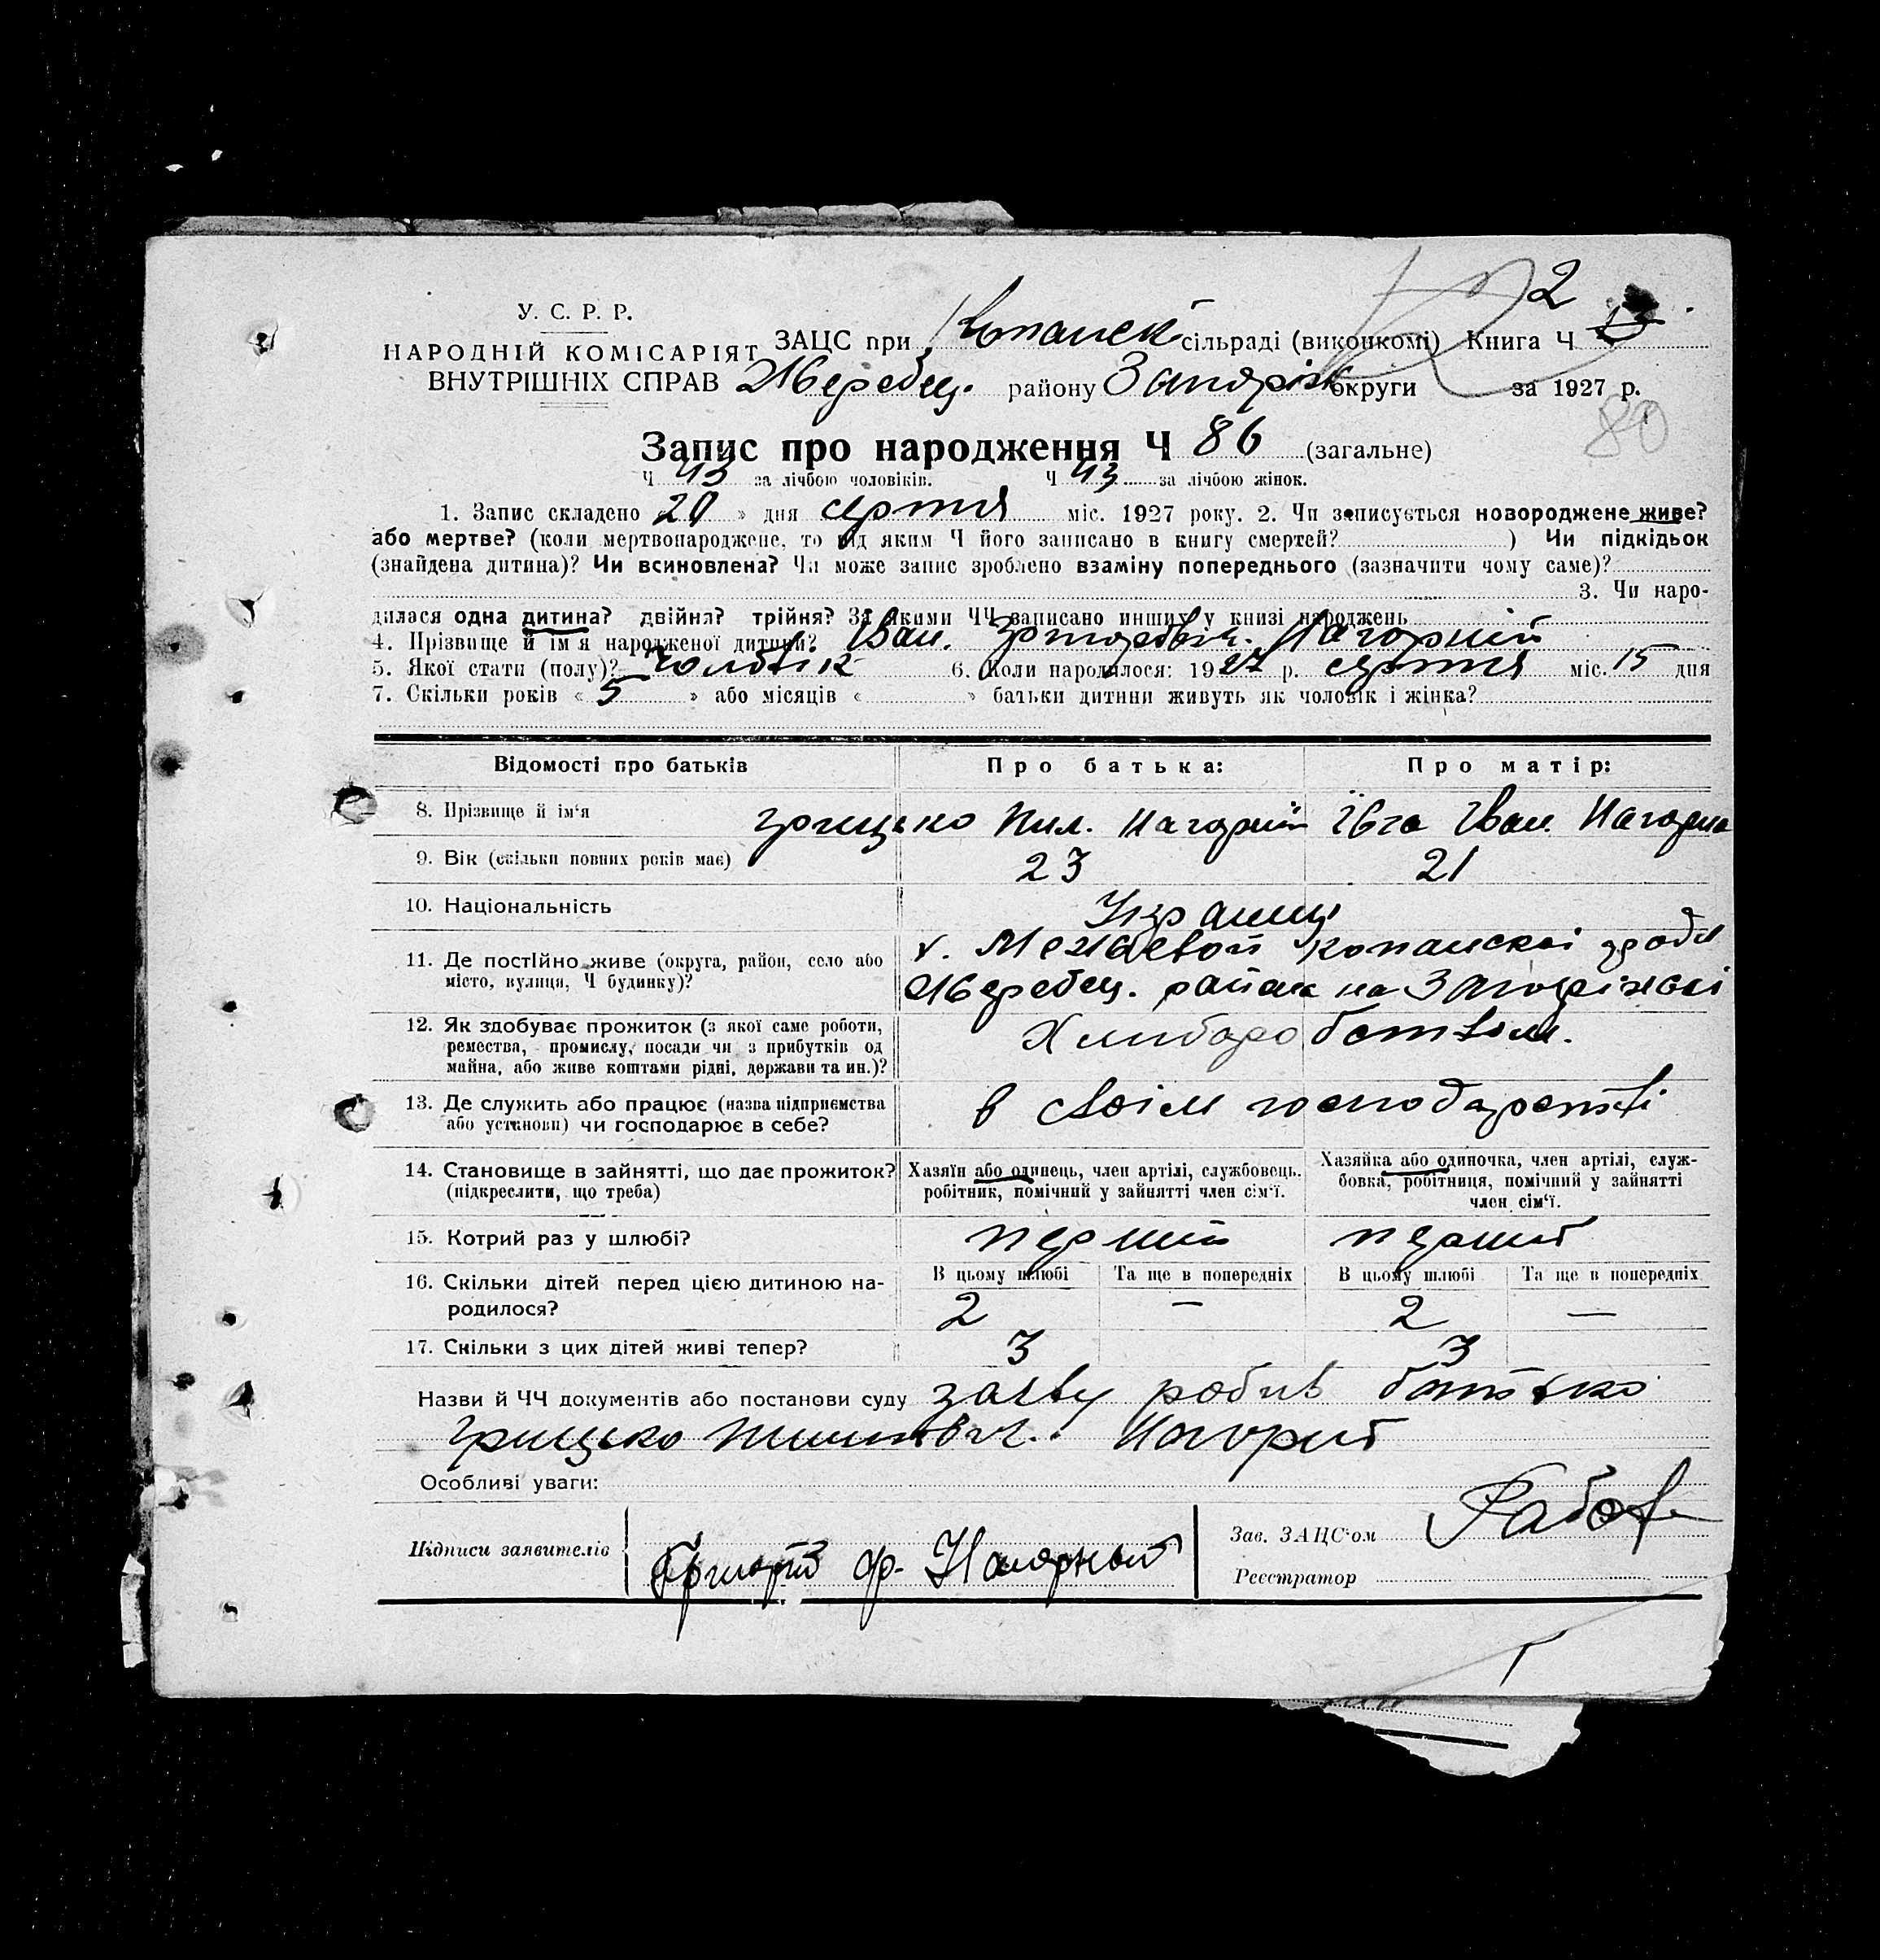 2
У. С. Р. Р.
НАРОДНІЙ КОМІСАРІЯТ
ВНУТРІШНІХ СПРАВ
ЗАЦС при Копанск сільраді (виконкомі) Книга Ч
Жеребец. району Запоріж округи за 1927 р.
80
Запис про народження Ч 86 (загальне)
Ч 43 за лічбою чоловіків. Ч 43 за лічбою жінок.
1. Запис складено « 20 » дня серпня міс. 1927 року. 2. Чи записується новороджене живе?
або мертве? (коли мертвонароджене, то під яким Ч його записано в книгу смертей? ) Чи підкідьок
(знайдена дитина)? Чи всиновлена? Чи може запис зроблено взаміну попереднього (зазначити чому саме)?
3. Чи наро-
дилася одна дитина? двійня? трійня? За якими ЧЧ записано инших у книзі народжень
4. Прізвище й ім'я народженої дитини? Іван. Григорович. Нагорний
5. Якої стати (полу)? чоловік 6. Коли народилося: 1927 р. серпня міс. 15 дня
7. Скільки років « 5 » або місяців « » батьки дитини живуть як чоловік і жінка?
Відомості про батьків Про батька: Про матір:
8. Прізвище й ім'я Грицько Пил. Нагорний Ївга Іван. Нагорна
9. Вік (скільки повних років має) 23 21
10. Національність Украинці
11. Де постійно живе (округа, район, село або
місто, вулиця, Ч будинку)?
х. Межевой копанскоі
Жеребец. района на Запоріжжі
12. Як здобуває прожиток (з якої саме роботи,
ремества, промислу, посади чи з прибутків од
майна, або живе коштами рідні, держави та ин.)?
Хлиборобством.
13. Де служить або працює (назва підприємства
або установи) чи господарює в себе?
в своім господарстві
14. Становище в зайнятті, що дає прожиток?
(підкреслити, що треба)
Хазяїн або одинець, член артілі, службовець.
робітник, помічний у зайнятті член сім'ї.
Хазяйка або одиночка, член артілі, служ-
бовка, робітниця, помічний у зайнятті
член сім'ї.
15. Котрий раз у шлюбі? перший перший
16. Скільки дітей перед цією дитиною на-
родилося?
В цьому шлюбі Та ще в попередніх В цьому шлюбі Та ще в попередніх
2 — 2 —
17. Скільки з цих дітей живі тепер? 3 3
Назви й ЧЧ документів або постанови суду заяву робив батько
Грицько Пилипович. Нагорний
Особливі уваги:
Підписи заявителів Григорій Ф. Нагорный
Зав. ЗАЦС'ом
Реєстратор